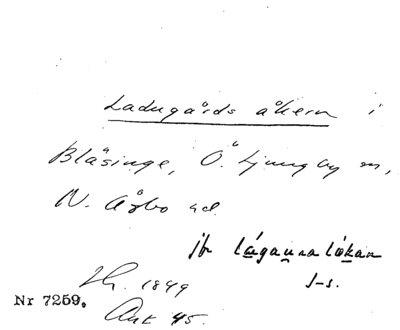 Ladugårds åkern i
Blåsinge, Ö. Ljungby sn,
N. Åsbo hd.
jfr lágaunalökan
J-s.
Lk. 1849
Nr 7259.
Akt 45.